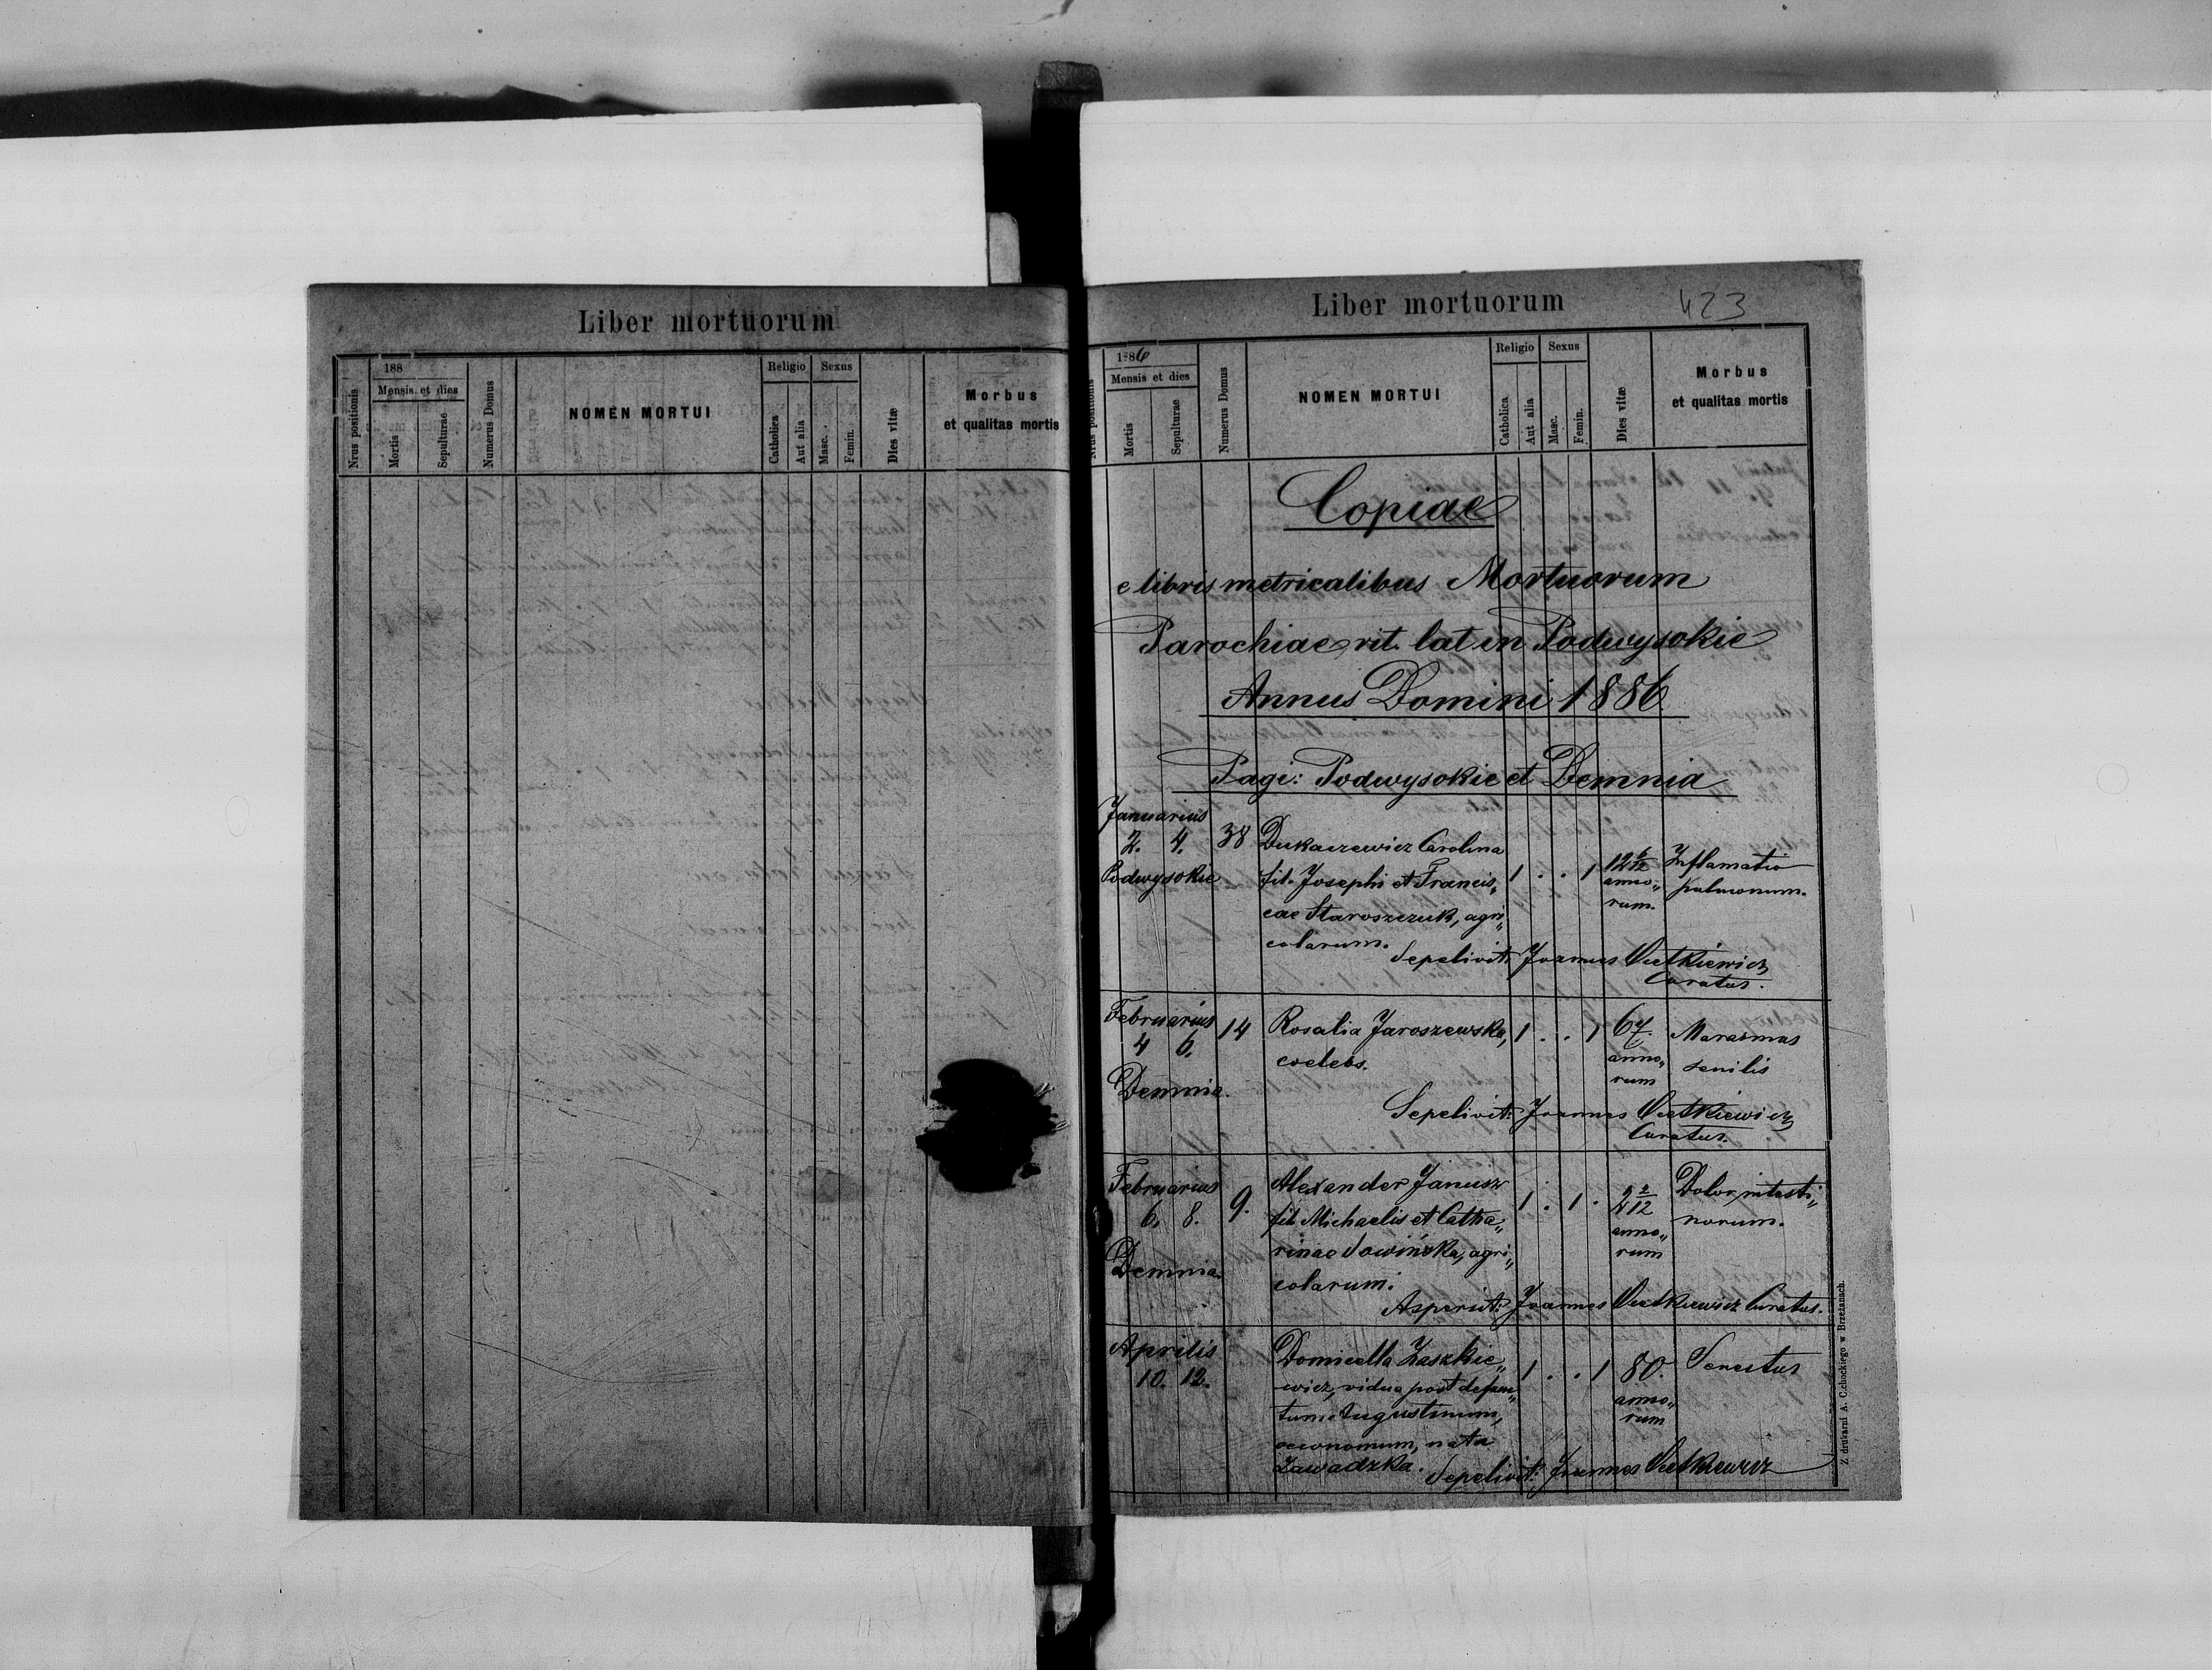 Liber mortuorum
188
Mensis et dies
Religio
Sexus
Nrus positionis
Mortis
Sepulturae
Numerus Domus
NOMEN MORTUI
Catholica
Aut alia
Masc.
Femin.
Dies vitæ
Morbus
et qualitas mortis
Liber mortuorum
423
1886
Mensis et dies
Religio
Sexus
Nrus positionis
Mortis
Sepulturae
Numerus Domus
NOMEN MORTUI
Catholica
Aut alia
Masc.
Femin.
Dies vitæ
Morbus
et qualitas mortis
Copiae
e libris metricalibus Mortuorum
Parochiae rit. lat in Podwysokie
Annus Domini 1886
Pagi: Podwysokie et Demnia
Januarius
2. 4. 38 Dukaczewicz Carolina
Podwysokie fil. Josephi et Francis„ 1 . . 1 12 6/12 Inflamatio
cae Staroszczuk, agri„ anno„ pulmonum.
colarum. rum.
Sepelivit: Joannes Wietkiewicz
Curatus.
Februarius 14 Rosalia Jaroszewska, 1 . . 1 67. Marasmus
4 6. coelebs. anno„ senilis
Demnia. rum
Sepelivit: Joannes Wietkiewicz
Curatus.
Februarius 9. Alexander Janusz 1 . 1 . 2 2/12 Dolor intesti„
6. 8. fil. Michaelis et Catha„ anno„ norum.
Demnia. rinae Sowińska, agri„ rum
colarum.
Asperuit: Joannes Wietkiewicz Curatus.
Aprilis Domicella Zaszkie„ 1 . . 1 80. Senectus
10. 12. wicz, vidua post defunc„ anno„
tum Augustinum, rum
oeconomum, nata
Zawadzka. Sepelivit: Joannes Wietkiewicz
Z drukarni A. C.chockiego w Brzeżanach.